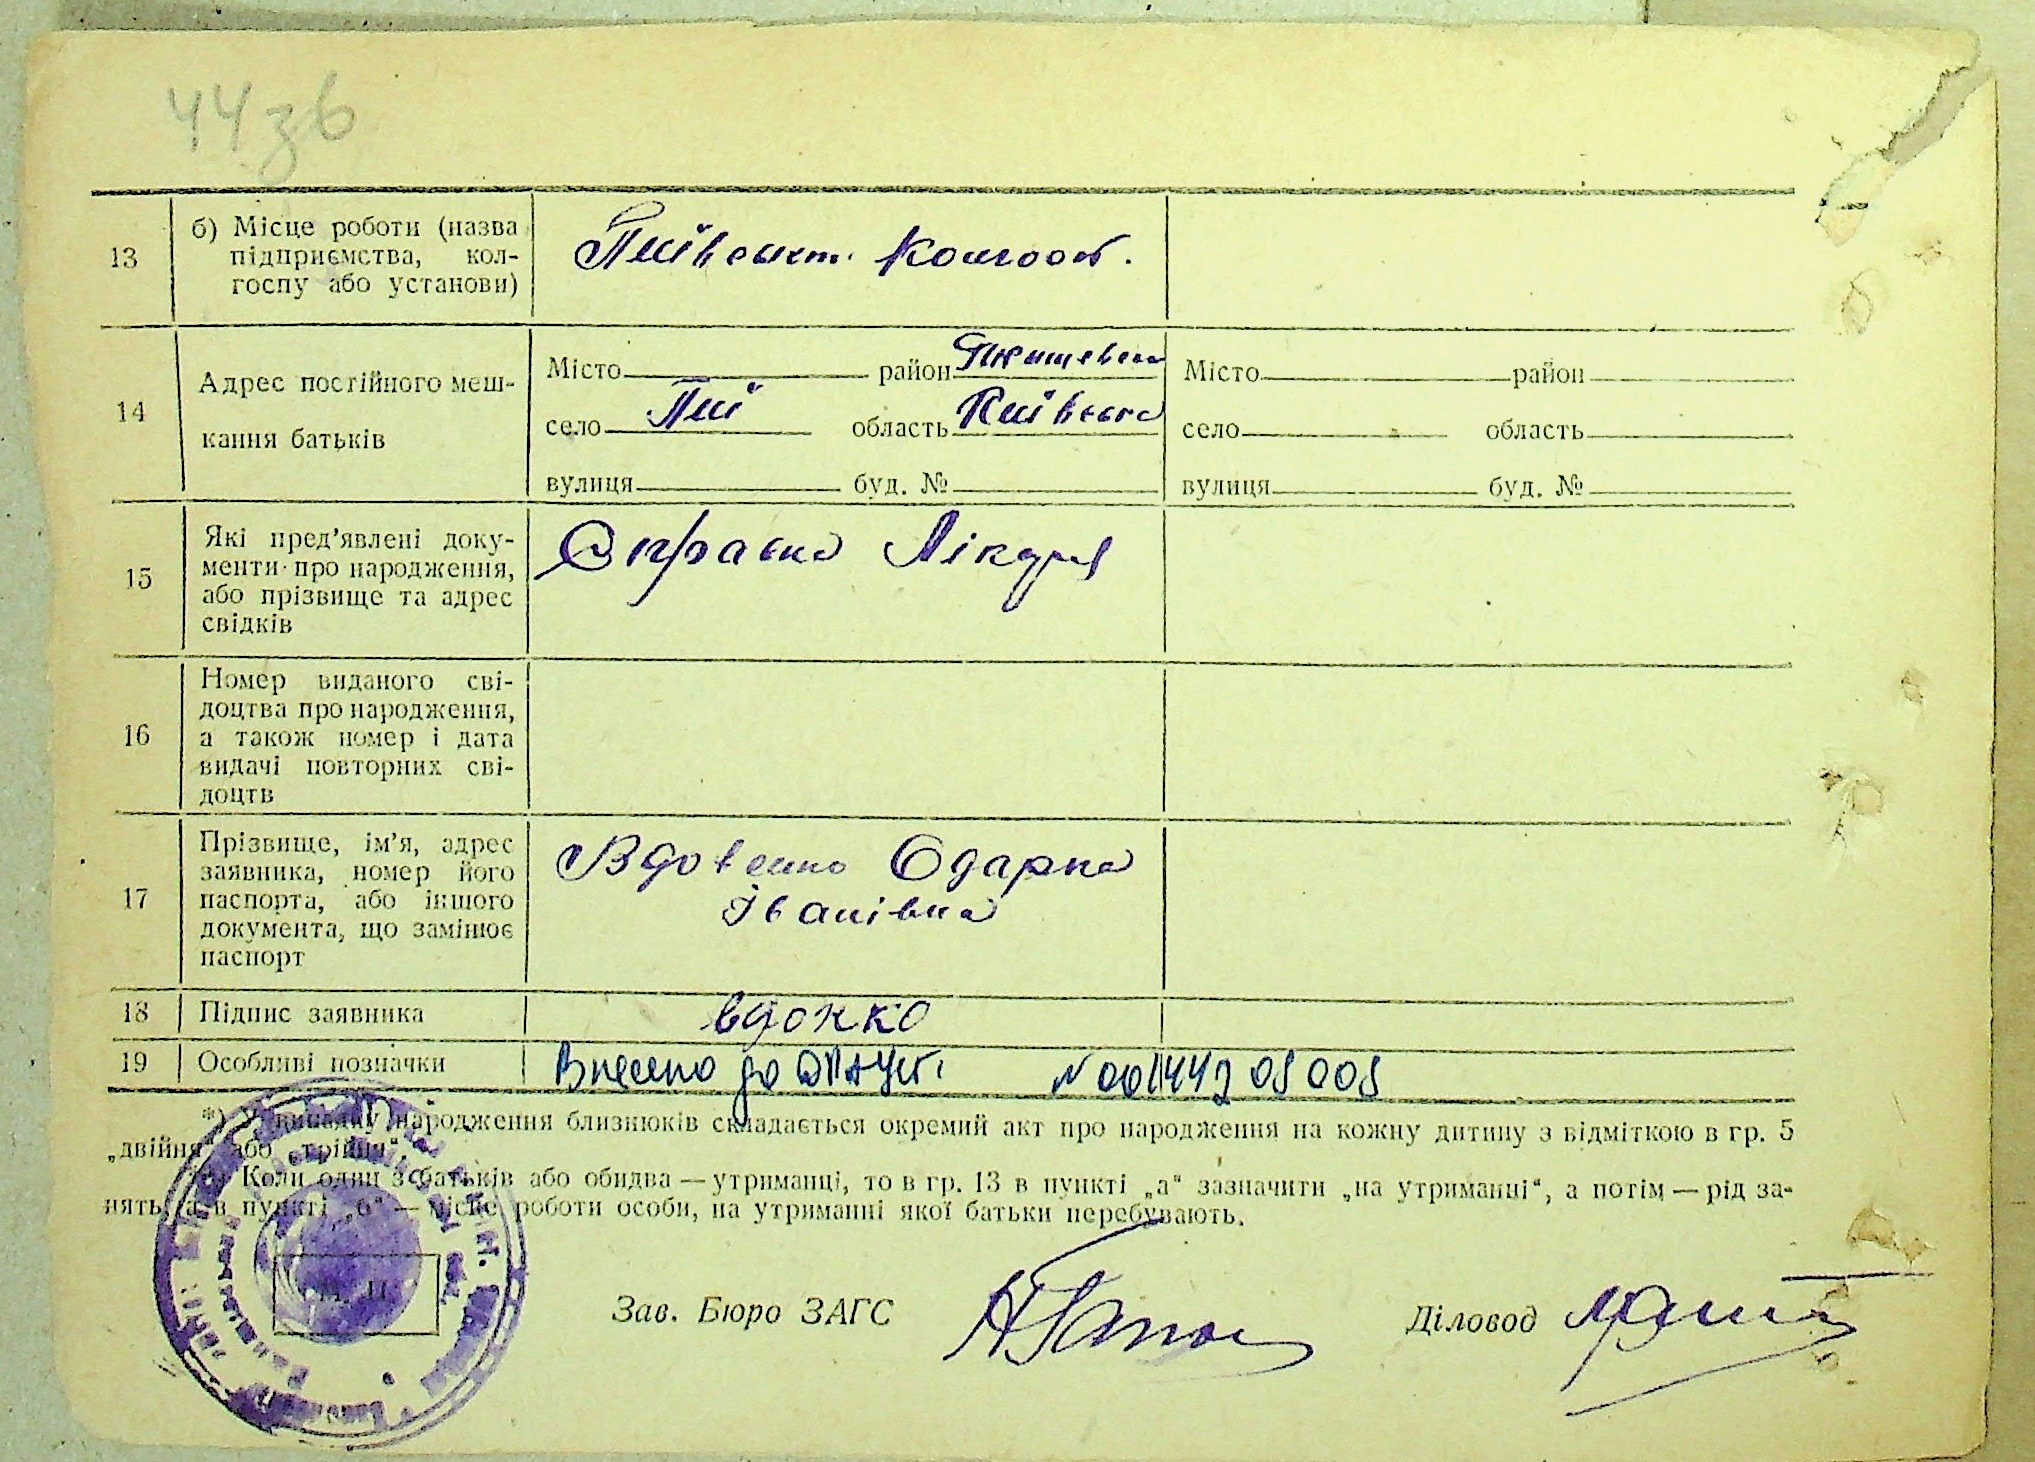 44зв
13
б) Місце роботи (назва
підприємства, кол-
госпу або установи)
Пиївськ. колгосп.
14
Адрес постійного меш-
кання батьків
Місто район Ржищевськ
село Пиї область Київська
вулиця буд. №
Місто район
село область
вулиця буд. №
15
Які пред’явлені доку-
менти про народження,
або прізвище та адрес
свідків
Справка Лікаря
16
Номер виданого сві-
доцтва про народження,
а також номер і дата
видачі повторних сві-
доцтв
17
Прізвище, ім’я, адрес
заявника, номер його
паспорта, або іншого
документа, що замінює
паспорт
Вдовенко Одарка
Іванівна
18
Підпис заявника
19
Особливі позначки
Внесено до
*) У випадку народження близнюків складається окремий акт про народження на кожну дитину з відміткою в гр. 5
„двійня“ або „трійня“.
Коли один з батьків або обидва — утриманці, то в гр. 13 в пункті „а“ зазначити „на утриманні“, а потім — рід за-
нять, а в пункті „б“ — місце роботи особи, на утриманні якої батьки перебувають.
Зав. Бюро ЗАГС
Діловод